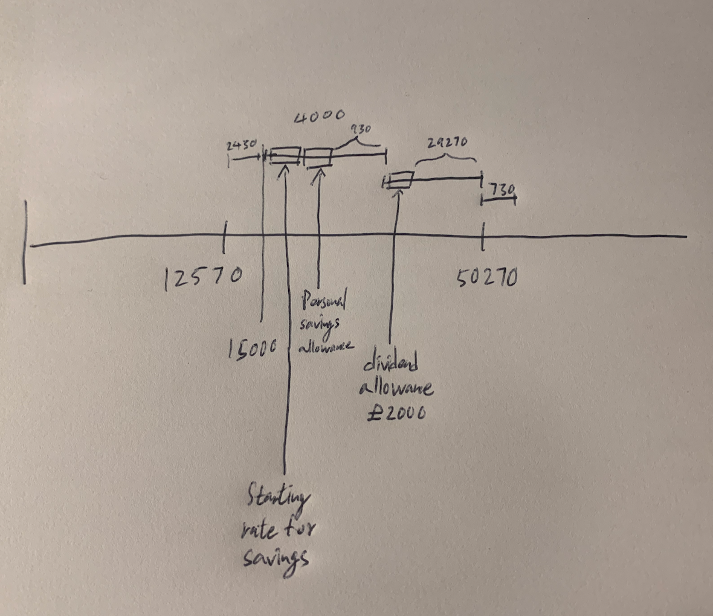 4000
2430
930
29270
730
12570
50270
Personal
savings
allowance
15000
dividend
allowance
£2000
Starting
rate for
savings